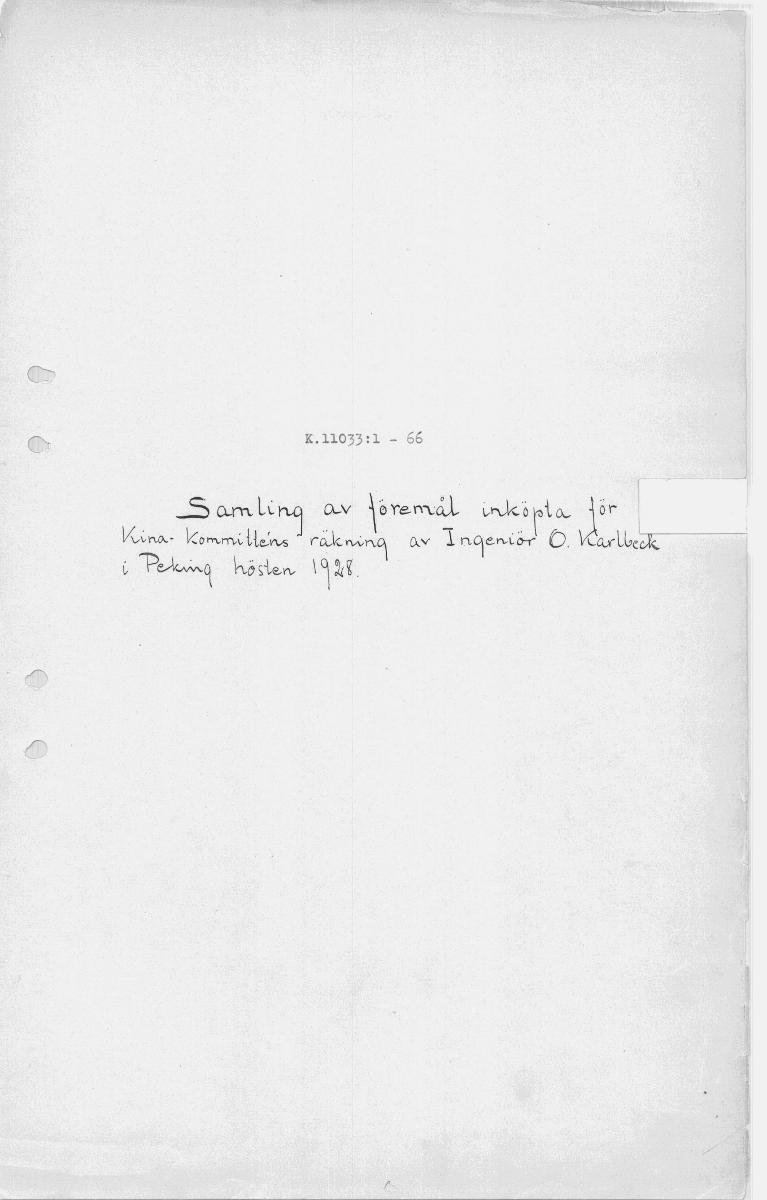 K.11033:1 - 66
Samling av föremål inköpta för
Kina-Kommitténs räkning av Ingeniör O. Karlbeck
i Peking hösten 1928.